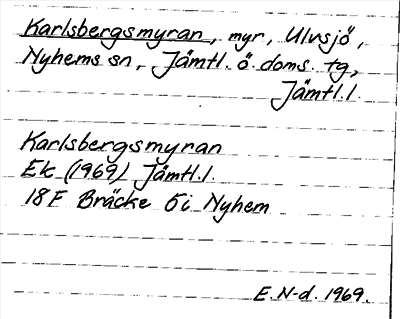 Karlsbergsmyran, myr, Ulvsjö,
Nyhems sn, Jämtl. ö. doms. tg,
Jämtl.l.
Karlsbergsmyran
Ek (1969) Jämtl.l.
18F Bräcke 5i Nyhem
E. N-d. 1969.